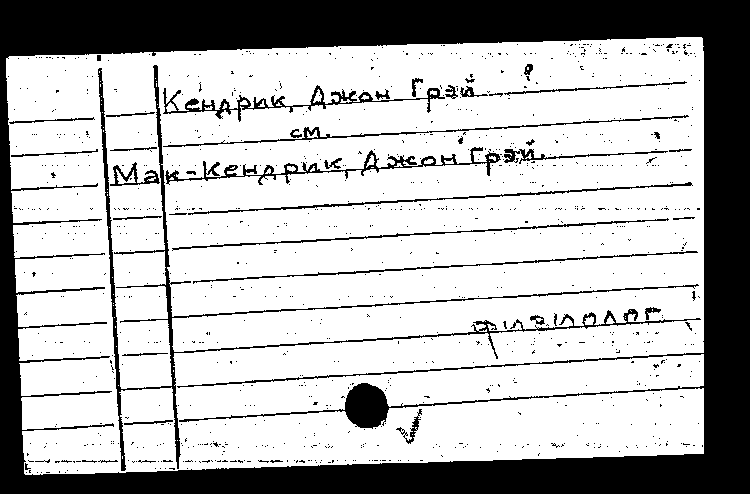 Кендрик, Джон Грэй ?
см.
Мак-Кендрик, Джон Грэй.
физиолог